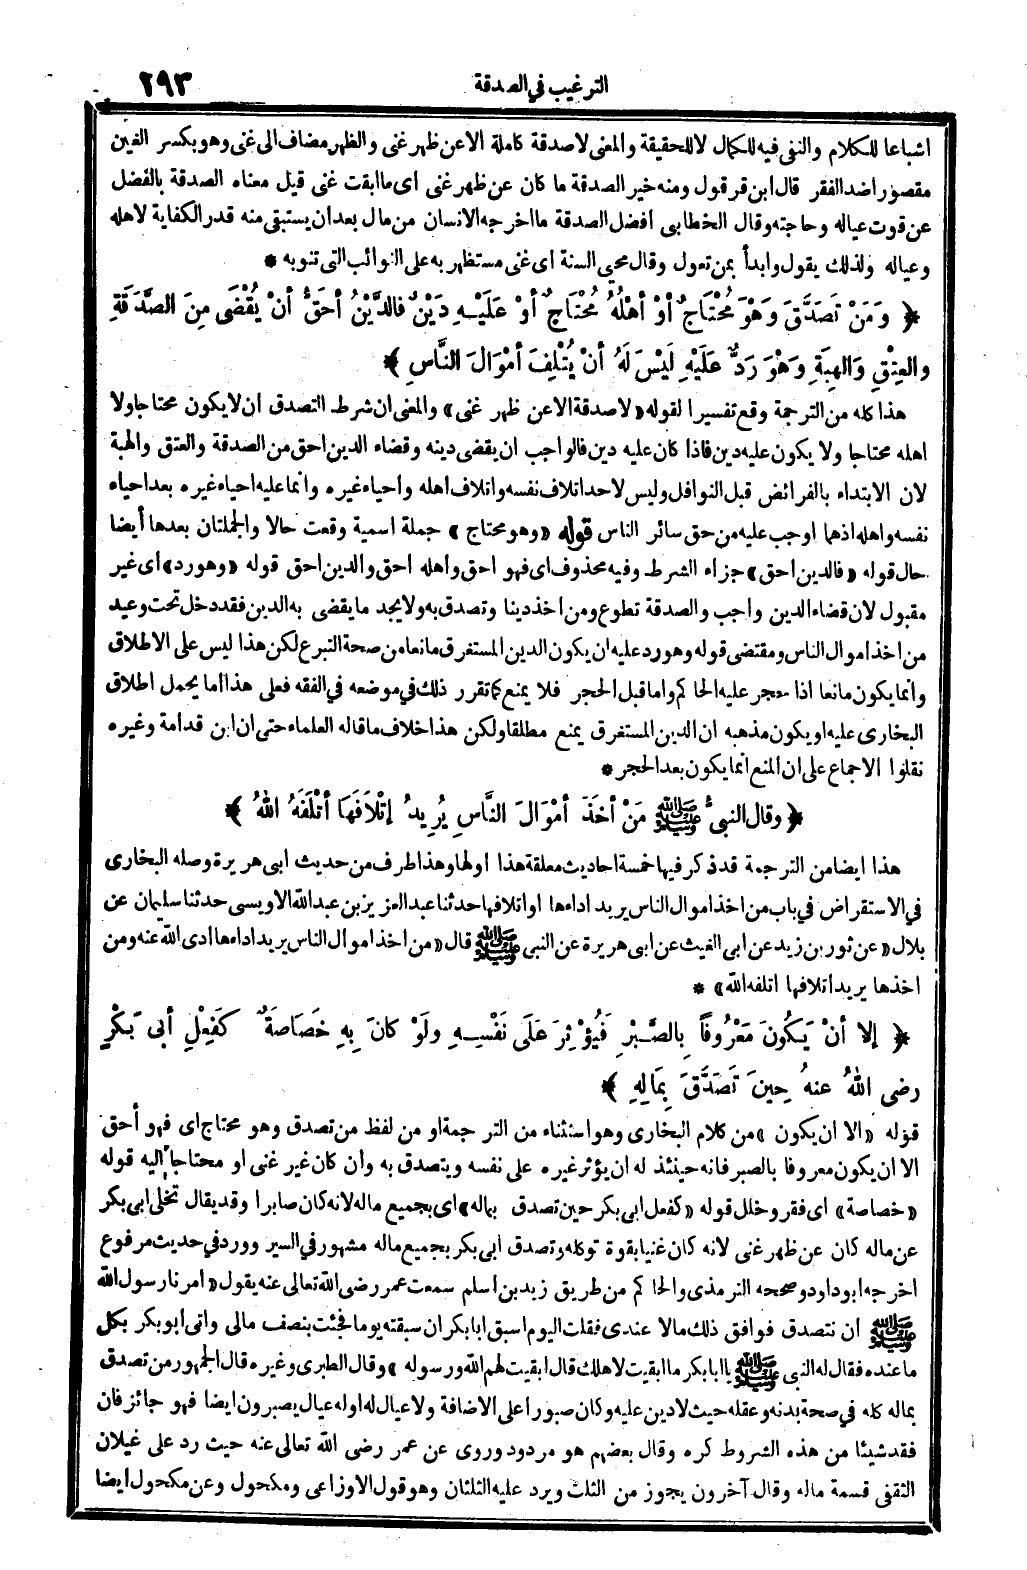 الترغيب في الصدقة
٢٩٣
اشباعا للكلام والنفى فيه للكمال لا للحقيقة والمعنى لا صدقة كاملة الا عن ظهر غنى والظهر مضاف الى غنى وهو بكسر الغين
مقصورا ضد الفقر قال ابن قرقول ومنه خير الصدقة ما كان عن ظهر غنى اى ما ابقت غنى قيل معناه الصدقة بالفضل
عن قوت عياله وحاجته وقال الخطابى افضل الصدقة ما اخرجه الانسان من مال بعد ان يستبقى منه قدر الكفاية لاهله
وعياله ولذلك يقول وابدأ بمن تعول وقال محيى السنة اى غنى مستظهر به على النوائب التى تنوبه *
﴿ وَمَنْ تَصَدَّقَ وَهْوَ مُحْتَاجٌ أَوْ أَهْلُهُ مُحْتَاجٌ أَوْ عَلَيْهِ دَيْنٌ فالدَّيْنُ أَحَقُّ أَنْ يُقْضَى مِنَ الصَّدَقَةِ
والعِتْقِ وَالهِبَةِ وَهْوَ رَدٌّ عَلَيْهِ لَيْسَ لَهُ أَنْ يُتْلِفَ أَمْوَالَ النَّاسِ ﴾
هذا كله من الترجمة وقع تفسيرا لقوله «لا صدقة الا عن ظهر غنى» والمعنى ان شرط التصدق ان لا يكون محتاجا ولا
اهله محتاجا ولا يكون عليه دين فاذا كان عليه دين فالواجب ان يقضى دينه وقضاء الدين احق من الصدقة والعتق والهبة
لان الابتداء بالفرائض قبل النوافل وليس لاحد اتلاف نفسه واتلاف اهله واحياء غيره وانما عليه احياء غيره بعد احياء
نفسه واهله اذ هما اوجب عليه من حق سائر الناس قوله «وهو محتاج» جملة اسمية وقعت حالا والجملتان بعدها أيضا
حال قوله «فالدين احق» جزاء الشرط وفيه محذوف اى فهو احق واهله احق والدين احق قوله «وهو رد» اى غير
مقبول لان قضاء الدين واجب والصدقة تطوع ومن اخذ دينا وتصدق به ولا يجد ما يقضى به الدين فقد دخل تحت وعيد
من اخذ اموال الناس ومقتضى قوله وهو رد عليه ان يكون الدين المستغرق مانعا من صحة التبرع لكن هذا ليس على الاطلاق
وانما يكون مانعا اذا حجر عليه الحاكم واما قبل الحجر فلا يمنع كما تقرر ذلك في موضعه في الفقه فعلى هذا اما يحمل اطلاق
البخارى عليه او يكون مذهبه ان الدين المستغرق يمنع مطلقا ولكن هذا خلاف ما قاله العلماء حتى ان ابن قدامة وغيره
نقلوا الاجماع على ان المنع انما يكون بعد الحجر *
﴿ وقال النبىُّ ﷺ مَنْ أَخَذَ أَمْوَالَ النَّاسِ يُرِيدُ إِتْلَافَهَا أَتْلَفَهُ اللهُ ﴾
هذا ايضا من الترجمة قد ذكر فيها خمسة احاديث معلقة هذا اولها وهذا طرف من حديث ابى هريرة وصله البخارى
في الاستقراض في باب من اخذ اموال الناس يريد اداءها او اتلافها حدثنا عبد العزيز بن عبد الله الاويسى حدثنا سليمان عن
بلال «عن ثور بن زيد عن ابى الغيث عن ابى هريرة عن النبى ﷺ قال «من اخذ اموال الناس يريد اداءها ادى الله عنه ومن
اخذها يريد اتلافها اتلفه الله» *
﴿ إلا أَنْ يَكُونَ مَعْرُوفًا بِالصَّبْرِ فَيُؤْثِرَ عَلَى نَفْسِهِ ولَوْ كانَ بِهِ خَصَاصَةٌ كَفِعْلِ أبى بَكْرٍ
رضى اللهُ عنهُ حِينَ تَصَدَّقَ بِمَالِهِ ﴾
قوله «الا ان يكون» من كلام البخارى وهو استثناء من الترجمة او من لفظ من تصدق وهو محتاج اى فهو أحق
الا ان يكون معروفا بالصبر فانه حينئذ له ان يؤثر غيره على نفسه ويتصدق به وان كان غير غنى او محتاجا اليه قوله
«خصاصة» اى فقر وخلل قوله «كفعل ابى بكر حين تصدق بماله» اى بجميع ماله لانه كان صابرا وقد يقال تخلى ابى بكر
عن ماله كان عن ظهر غنى لانه كان غنيا بقوة توكله وتصدق ابى بكر بجميع ماله مشهور في السير وورد في حديث مرفوع
اخرجه ابو داود وصححه الترمذى والحاكم من طريق زيد بن اسلم سمعت عمر رضى الله تعالى عنه يقول «امرنا رسول الله
ﷺ ان نتصدق فوافق ذلك مالا عندى فقلت اليوم اسبق ابا بكر ان سبقته يوما فجئت بنصف مالى واتى ابو بكر بكل
ما عنده فقال له النبى ﷺ يا ابا بكر ما ابقيت لاهلك قال ابقيت لهم الله ورسوله» وقال الطبرى وغيره قال الجمهور من تصدق
بماله كله في صحة بدنه وعقله حيث لا دين عليه وكان صبورا على الاضافة ولا عيال له او له عيال يصبرون ايضا فهو جائز فان
فقد شيئا من هذه الشروط كره وقال بعضهم هو مردود وروى عن عمر رضى الله تعالى عنه حيث رد على غيلان
الثقفى قسمة ماله وقال آخرون يجوز من الثلث ويرد عليه الثلثان وهو قول الاوزاعى ومكحول وعن مكحول ايضا